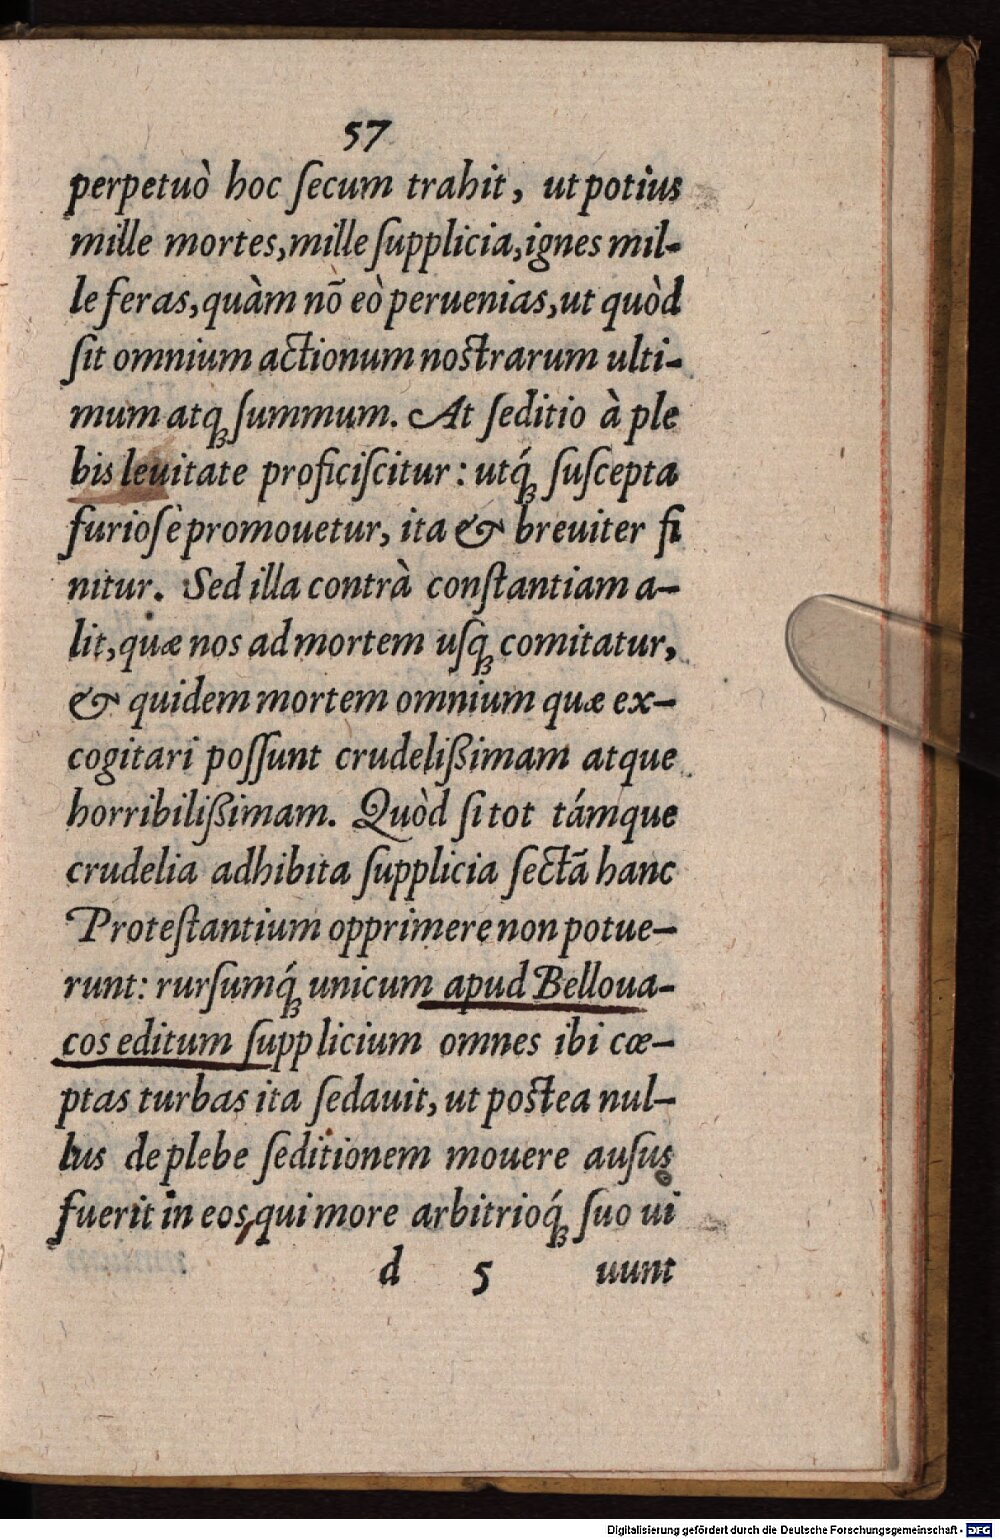 57
perpetuò hoc ſecum trahit, ut potius
mille mortes, mille ſupplicia, ignes mil-
le feras, quàm nõ eò peruenias, ut quòd
ſit omnium actionum noſtrarum ulti-
mum atq́ꝫ ſummum. At ſeditio à ple
bis leuitate proficiſcitur: utq́ꝫ ſuſcepta
furioſè promouetur, ita & breuiter fi
nitur. Sed illa contrà conſtantiam a-
lit, quæ nos ad mortem uſqꝫ comitatur,
& quidem mortem omnium quæ ex-
cogitari poſſunt crudelißimam atque
horribilißimam. Quòd ſi tot támque
crudelia adhibita ſupplicia ſectã hanc
Proteſtantium opprimere non potue-
runt: rurſumq́ꝫ unicum apud Belloua-
cos editum ſupplicium omnes ibi cœ-
ptas turbas ita ſedauit, ut poſtea nul-
lus de plebe ſeditionem mouere auſus
fuerit in eos, qui more arbitrioq́ꝫ ſuo ui
d 5 uunt
Digitalisierung gefördert durch die Deutsche Forschungsgemeinschaft - DFG